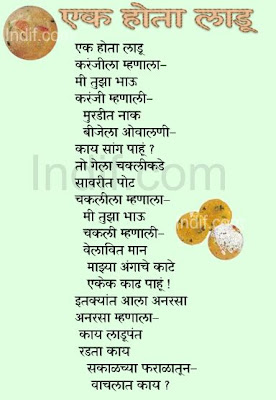 एक होता लाडू
एक होता लाडू
करंजीला म्हणाला-
मी तुझा भाऊ
करंजी म्हणाली-
मुरडीत नाक
बीजेला ओवाळणी-
काय सांग पाहूं ?
तो गेला चक्लीकडे
सावरीत पोट
चकलीला म्हणाला-
मी तुझा भाऊ
चकली म्हणाली-
वेलावित मान
माझ्या अंगाचे काटे
एकेक काढ पाहूं !
इतक्यांत आला अनरसा
अनरसा म्हणाला-
काय लाडूपंत
रडता काय
सकाळच्या फराळातून-
वाचलात काय ?
Indif.com
Indif.com
Indif.com